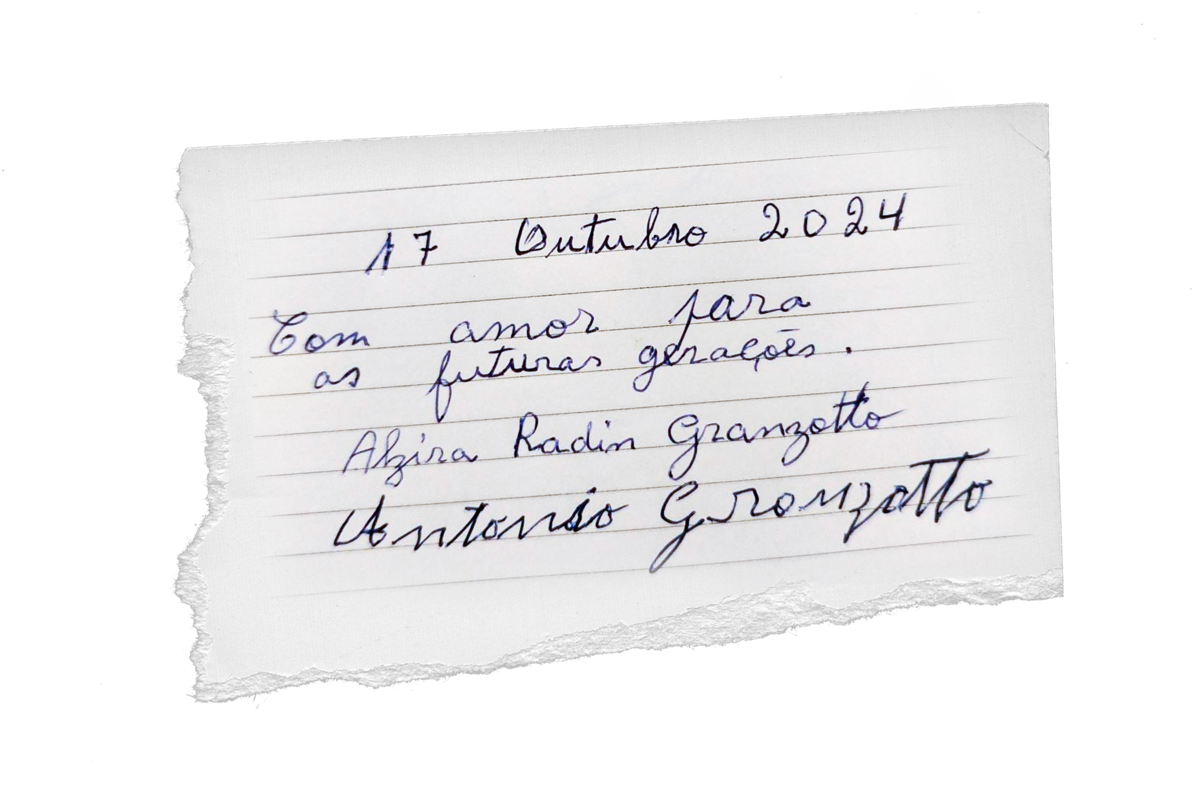 17 Outubro 2024
Com amor para
as futuras gerações.
Alzira Radin Granzotto
Antonio Granzotto